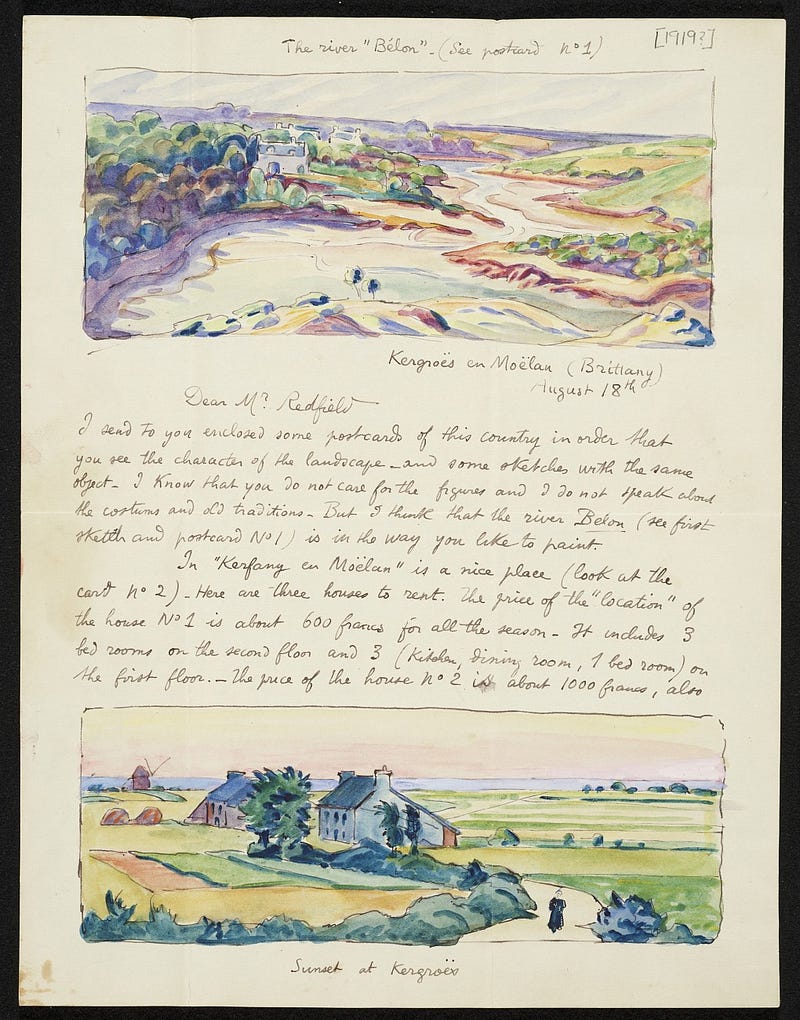 The river "Bélon" - (See postcard n° 1)
[1919?]
Kergroës en Moëlan (Brittany)
August 18th
Dear Mr. Redfield
I send to you enclosed some postcards of this country in order that
you see the character of the landscape - and some sketches with the same
object - I know that you do not care for the figures and I do not speak about
the costums and old traditions - But I think that the river Belon (see first
sketch and postcard N° 1) is in the way you like to paint.
In "Kerfany en Moëlan" is a nice place (look at the
card n° 2) - Here are three houses to rent. The price of the "location" of
the house N° 1 is about 600 francs for all the season - It includes 3
bed rooms on the second floor and 3 (Kitchen, dining room, 1 bed room) on
the first floor. - The price of the house n° 2 is about 1000 francs, also
Sunset at Kergroës